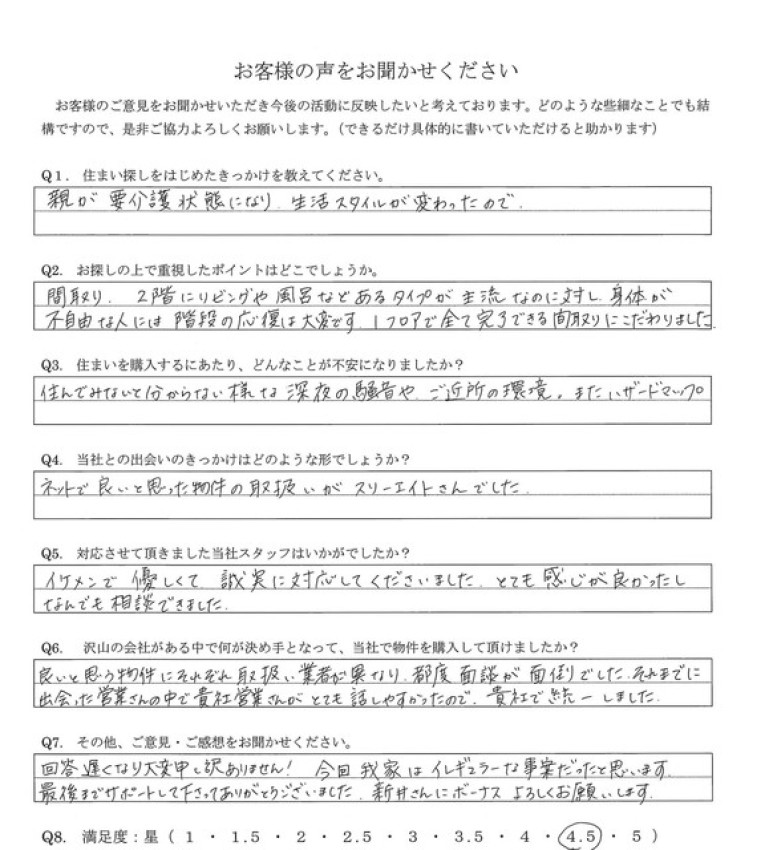 お客様の声をお聞かせください
お客様のご意見をお聞かせいただき今後の活動に反映したいと考えております。どのような些細なことでも結
構ですので、是非ご協力よろしくお願いします。（できるだけ具体的に書いていただけると助かります）
Q1. 住まい探しをはじめたきっかけを教えてください。
親が要介護状態になり、生活スタイルが変わったので。
Q2. お探しの上で重視したポイントはどこでしょうか。
間取り、2階にリビングや風呂などあるタイプが主流なのに対し、身体が
不自由な人には階段の応復は大変です。1フロアで全て完了できる間取りにこだわりました。
Q3. 住まいを購入するにあたり、どんなことが不安になりましたか？
住んでみないと分からない様な深夜の騒音や、ご近所の環境。またハザードマップ
Q4. 当社との出会いのきっかけはどのような形でしょうか？
ネットで良いと思った物件の取扱いがスリーエイトさんでした。
Q5. 対応させて頂きました当社スタッフはいかがでしたか？
イケメンで優しくて、誠実に対応してくださいました。とても感じが良かったし
なんでも相談できました。
Q6. 沢山の会社がある中で何が決め手となって、当社で物件を購入して頂けましたか？
良いと思う物件にそれぞれ取扱い業者が異なり、都度面談が面倒でした。それまでに
出会った営業さんの中で貴社営業さんがとても話しやすかったので、貴社で統一しました。
Q7. その他、ご意見・ご感想をお聞かせください。
回答遅くなり大変申し訳ありません！ 今回我家はイレギュラーな事案だったと思います。
最後までサポートして下さってありがとうございました。新井さんにボーナスよろしくお願いします。
Q8. 満足度：星（ 1 ・ 1.5 ・ 2 ・ 2.5 ・ 3 ・ 3.5 ・ 4 ・ 4.5 ・ 5 ）